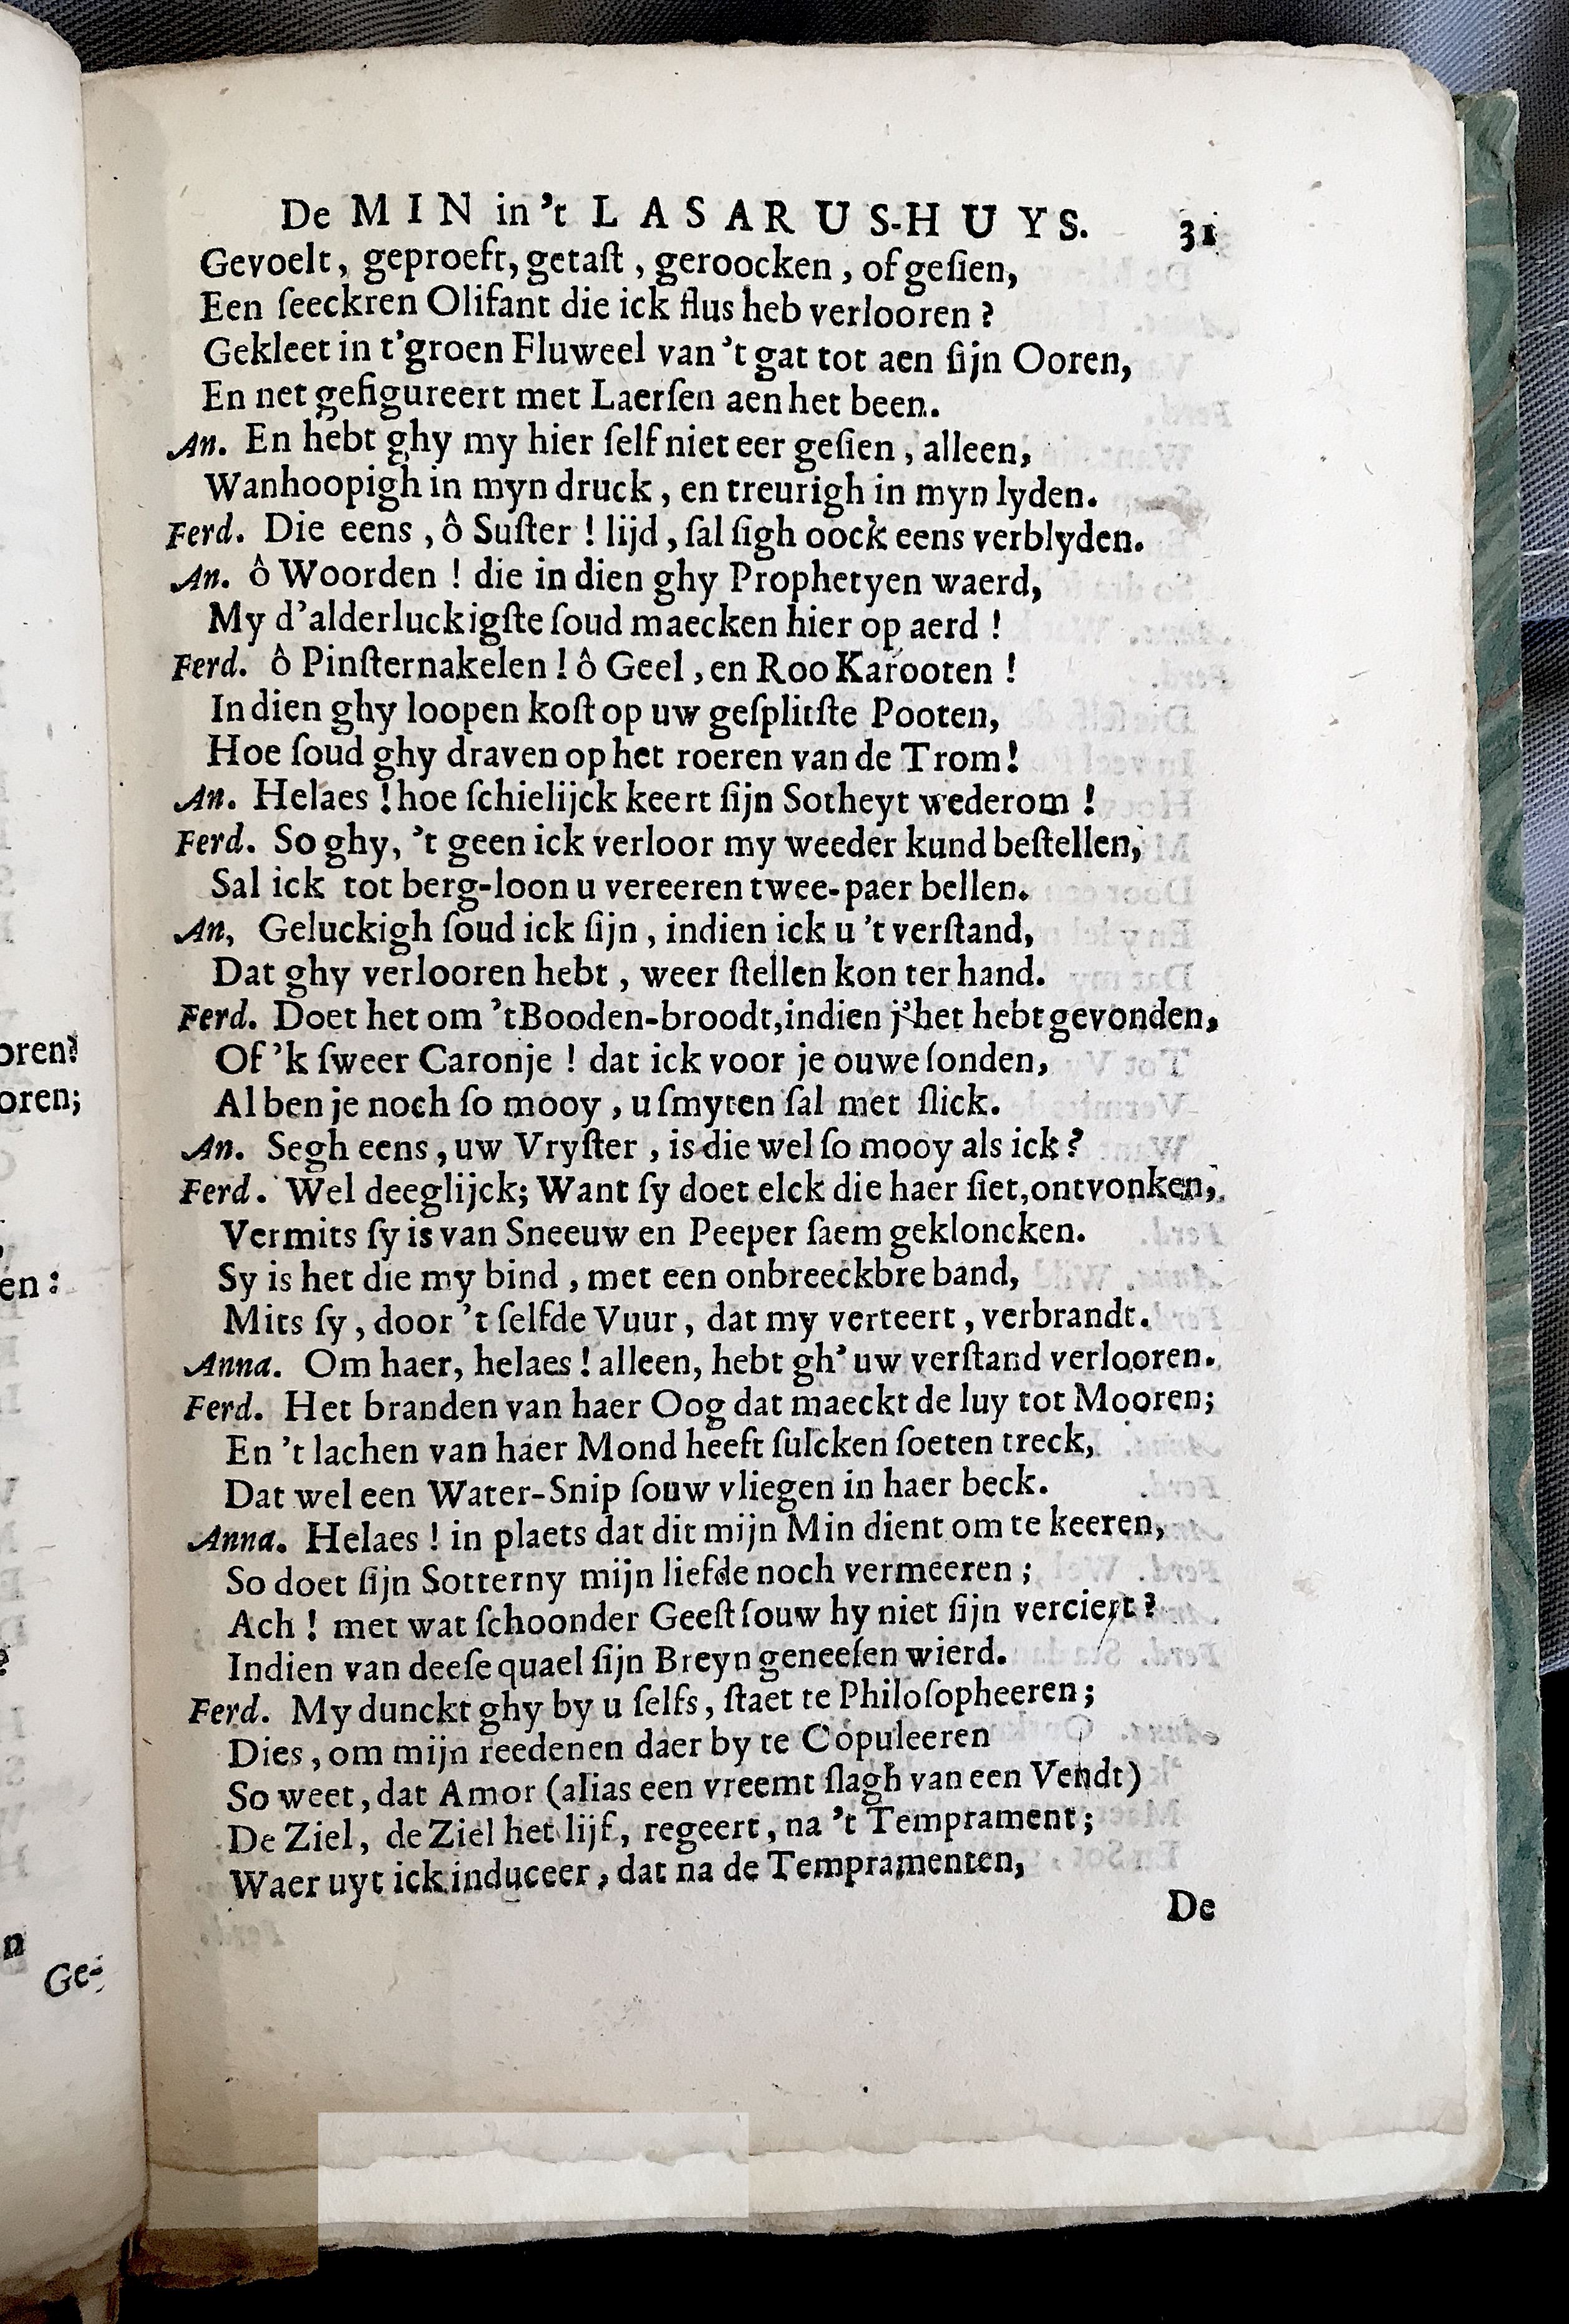 De MIN in 't LASARUS-HUYS. 31
Gevoelt, geproeft, getaſt, geroocken, of geſien,
Een ſeeckren Olifant die ick flus heb verlooren?
Gekleet in t'groen Fluweel van 't gat tot aen ſijn Ooren,
En net gefigureert met Laerſen aen het been.
An. En hebt ghy my hier ſelf niet eer geſien, alleen,
Wanhoopigh in myn druck, en treurigh in myn lyden.
Ferd. Die eens, ô Suſter! lijd, ſal ſigh oock eens verblyden.
An. ô Woorden! die in dien ghy Prophetyen waerd,
My d'alderluckigſte ſoud maecken hier op aerd!
Ferd. ô Pinſternakelen! ô Geel, en Roo Karooten!
In dien ghy loopen koſt op uw geſplitſte Pooten,
Hoe ſoud ghy draven op het roeren van de Trom!
An. Helaes! hoe ſchielijck keert ſijn Sotheyt wederom!
Ferd. So ghy, 't geen ick verloor my weeder kund beſtellen,
Sal ick tot berg-loon u vereeren twee-paer bellen.
An, Geluckigh ſoud ick ſijn, indien ick u 't verſtand,
Dat ghy verlooren hebt, weer ſtellen kon ter hand.
Ferd. Doet het om 't Booden-broodt, indien j'het hebt gevonden,
Of 'k ſweer Caronje! dat ick voor je ouwe ſonden,
Al ben je noch ſo mooy, u ſmyten ſal met ſlick.
An. Segh eens, uw Vryſter, is die wel ſo mooy als ick?
Ferd. Wel deeglijck; Want ſy doet elck die haer ſiet, ontvonken,
Vermits ſy is van Sneeuw en Peeper ſaem gekloncken.
Sy is het die my bind, met een onbreeckbre band,
Mits ſy, door 't ſelfde Vuur, dat my verteert, verbrandt.
Anna. Om haer, helaes! alleen, hebt gh' uw verſtand verlooren.
Ferd. Het branden van haer Oog dat maeckt de luy tot Mooren;
En 't lachen van haer Mond heeft ſulcken ſoeten treck,
Dat wel een Water-Snip ſouw vliegen in haer beck.
Anna. Helaes! in plaets dat dit mijn Min dient om te keeren,
So doet ſijn Sotterny mijn liefde noch vermeeren;
Ach! met wat ſchoonder Geeſt ſouw hy niet ſijn verciert?
Indien van deeſe quael ſijn Breyn geneeſen wierd.
Ferd. My dunckt ghy by u ſelfs, ſtaet te Philoſopheeren;
Dies, om mijn reedenen daer by te Copuleeren
So weet, dat Amor (alias een vreemt ſlagh van een Vendt)
De Ziel, de Ziel het lijf, regeert, na 't Temprament;
Waer uyt ick induceer, dat na de Tempramenten,
De
oren?
oren;
en:
n
Ge-